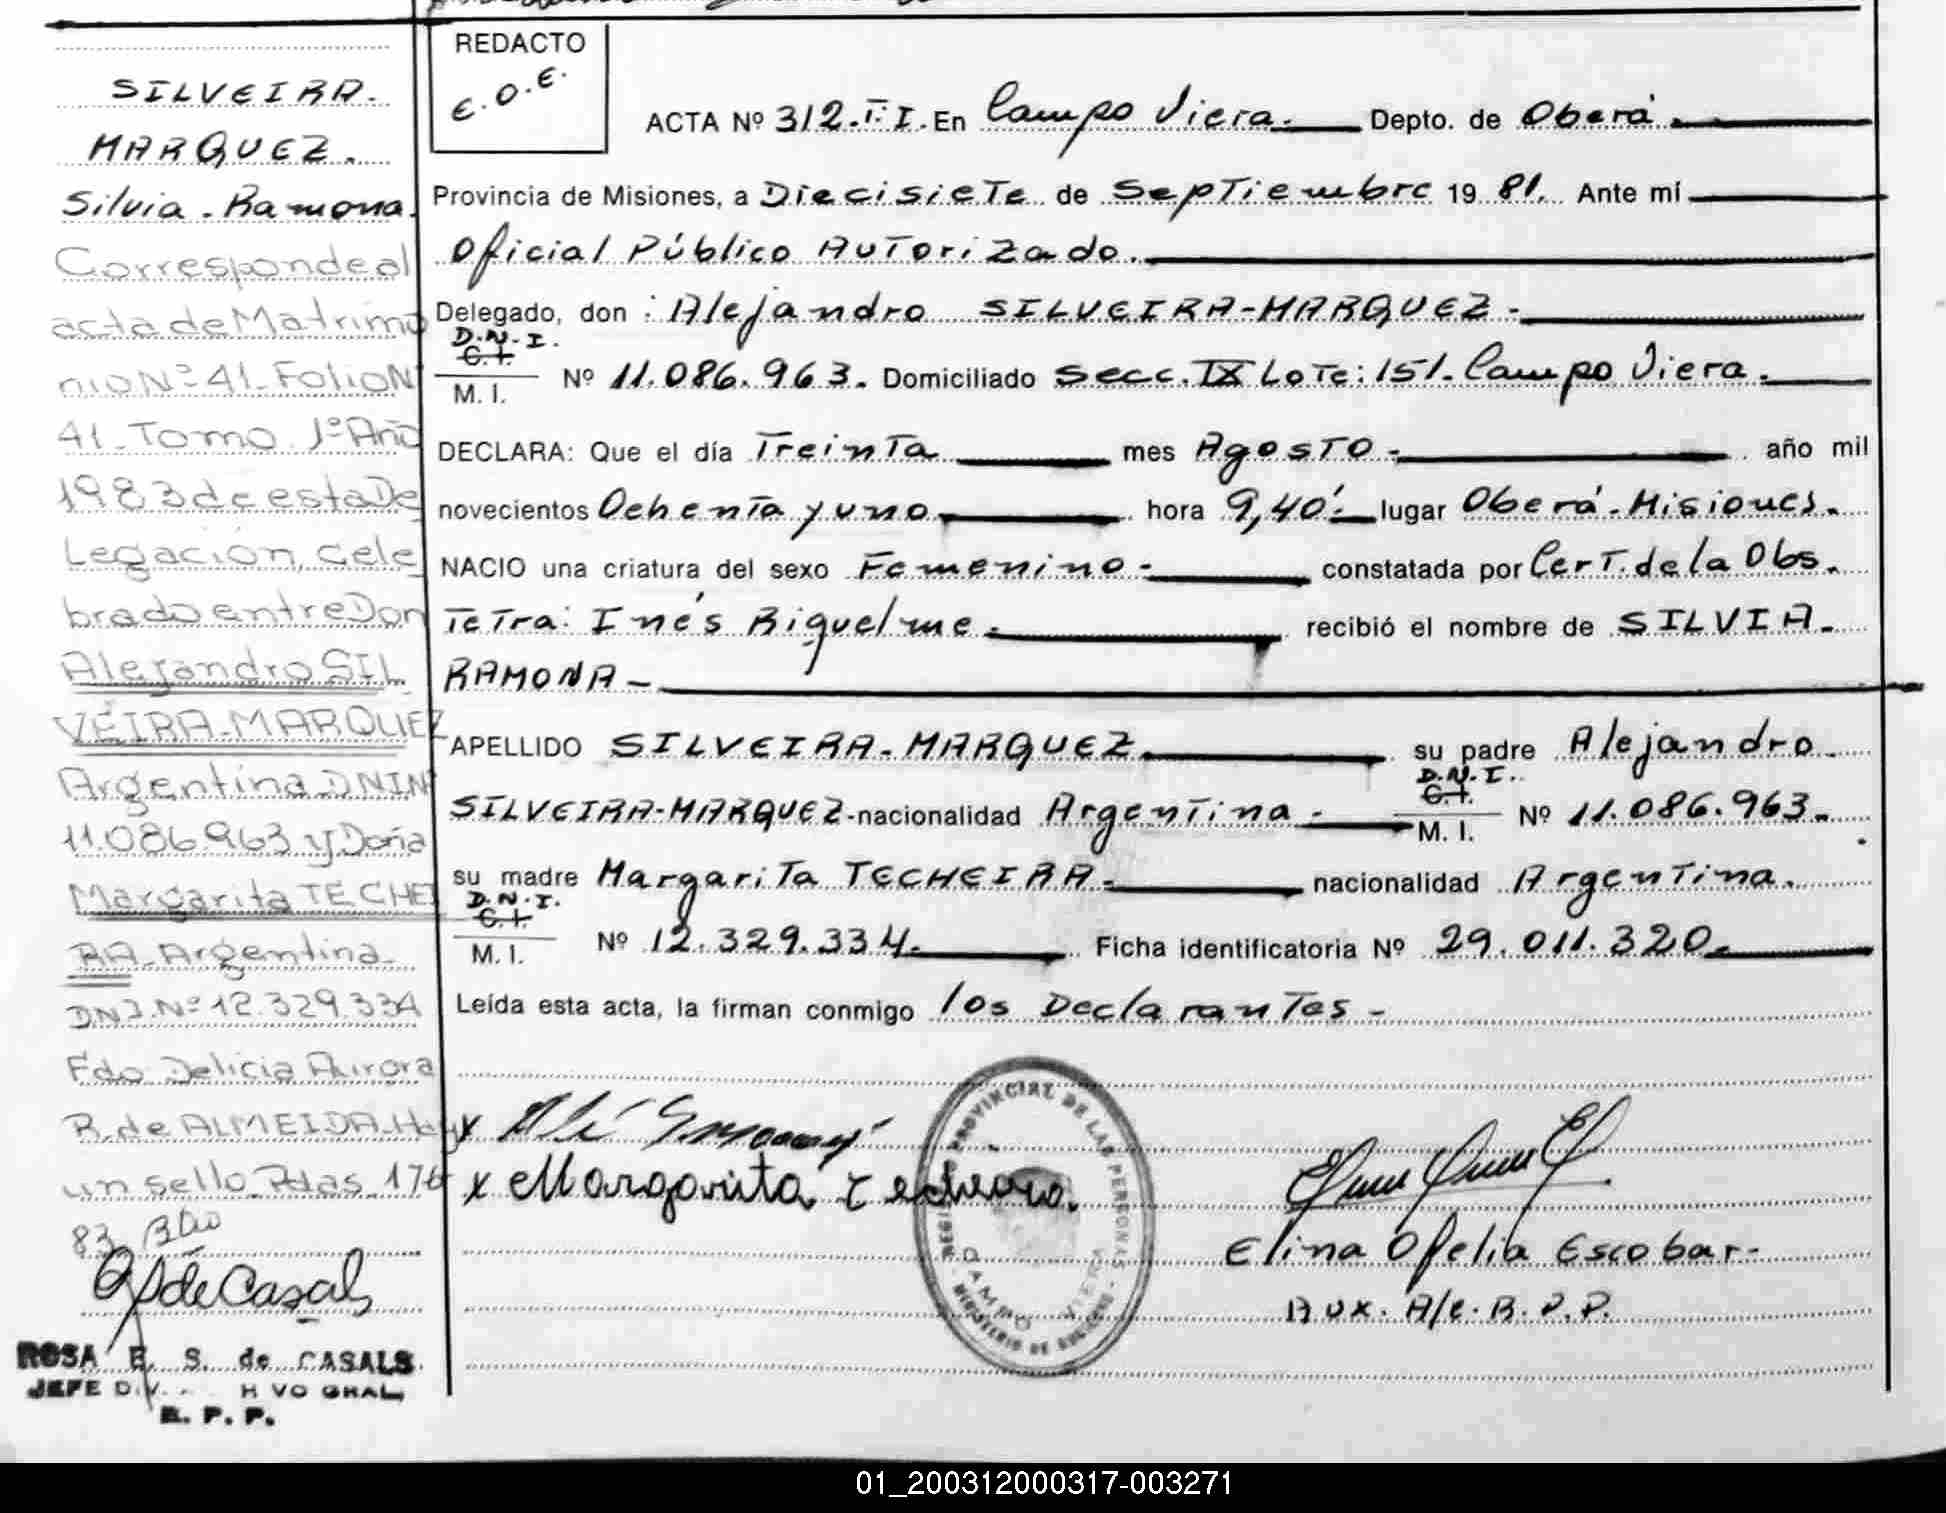 SILVEIRA.
MARQUEZ.
Silvia. Ramona.
Corresponde al
acta de Matrimo
nio Nº 41 Folio Nº
41 Tomo 1º Año
1983 de esta De
Legación, Cele
brado entre Don
Alejandro SIL
VEIRA-MARQUEZ
Argentina DNI Nº
11.086.963 y Doña
Margarita TECHEI
RA Argentina
DNI. Nº 12.329.334
Fdo Delicia Aurora
R. de ALMEIDA Hay
un sello. Pdas. 176
83
de Casals
ROSA E. S. de CASALS
JEFE DIV. H VO GRAL
R. P. P.
REDACTO
E.O.E.
ACTA Nº 312.T:I. En Campo Viera. Depto. de Oberá.
Provincia de Misiones, a Diecisiete de Septiembre 19 81. Ante mí
Oficial Público Autorizado.
Delegado, don : Alejandro SILVEIRA-MARQUEZ.
D.N.I.
C.I.
M. I. Nº 11.086.963. Domiciliado Secc. IX Lote: 151. Campo Viera.
DECLARA: Que el día Treinta mes Agosto año mil
novecientos Ochenta y uno hora 9,40' lugar Oberá-Misiones.
NACIO una criatura del sexo Femenino constatada por Cert. de la Obs.
Tetra: Inés Riquelme. recibió el nombre de SILVIA
RAMONA
APELLIDO SILVEIRA-MARQUEZ su padre Alejandro
D.N.I.
C.I.
SILVEIRA-MARQUEZ-nacionalidad Argentina M. I. Nº 11.086.963.
su madre Margarita TECHEIRA nacionalidad Argentina.
D.N.I.
C.I.
M. I. Nº 12.329.334. Ficha identificatoria Nº 29.011.320
Leída esta acta, la firman conmigo los Declarantes
x
x Margarita Techeira.
REGISTRO PROVINCIAL DE LAS PERSONAS
CAMPO VIERA
MINISTERIO DE GOBIERNO
Elina Ofelia Escobar
Aux. A/c. R.P.P.
01_200312000317-003271